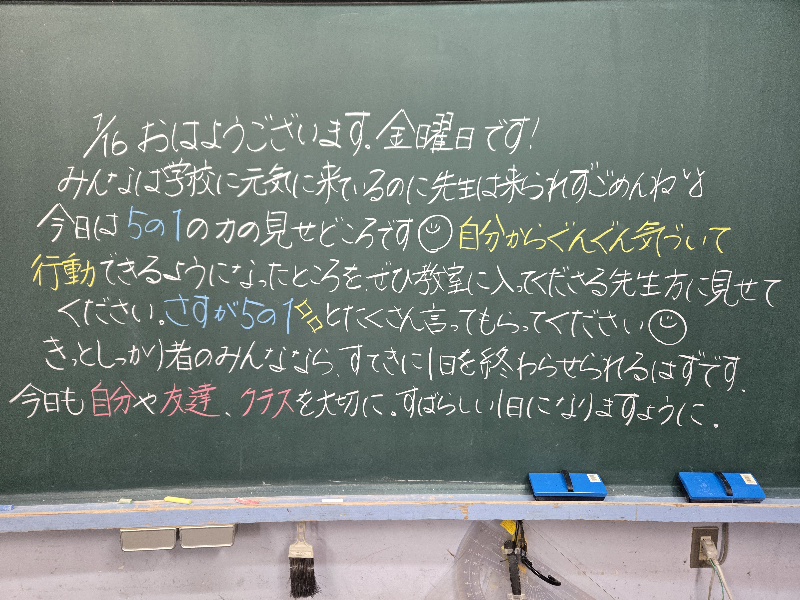 1/16 おはようございます。金曜日です!
みんなは学校に元気に来ているのに先生は来られずごめんね
今日は5の1の力の見せどころです 自分からぐんぐん気づいて
行動できるようになったところをぜひ教室に入ってくださる先生方に見せて
ください。さすが5の1 とたくさん言ってもらってください
きっとしっかり者のみんななら、すてきに1日を終わらせられるはずです。
今日も自分や友達、クラスを大切に。すばらしい1日になりますように。